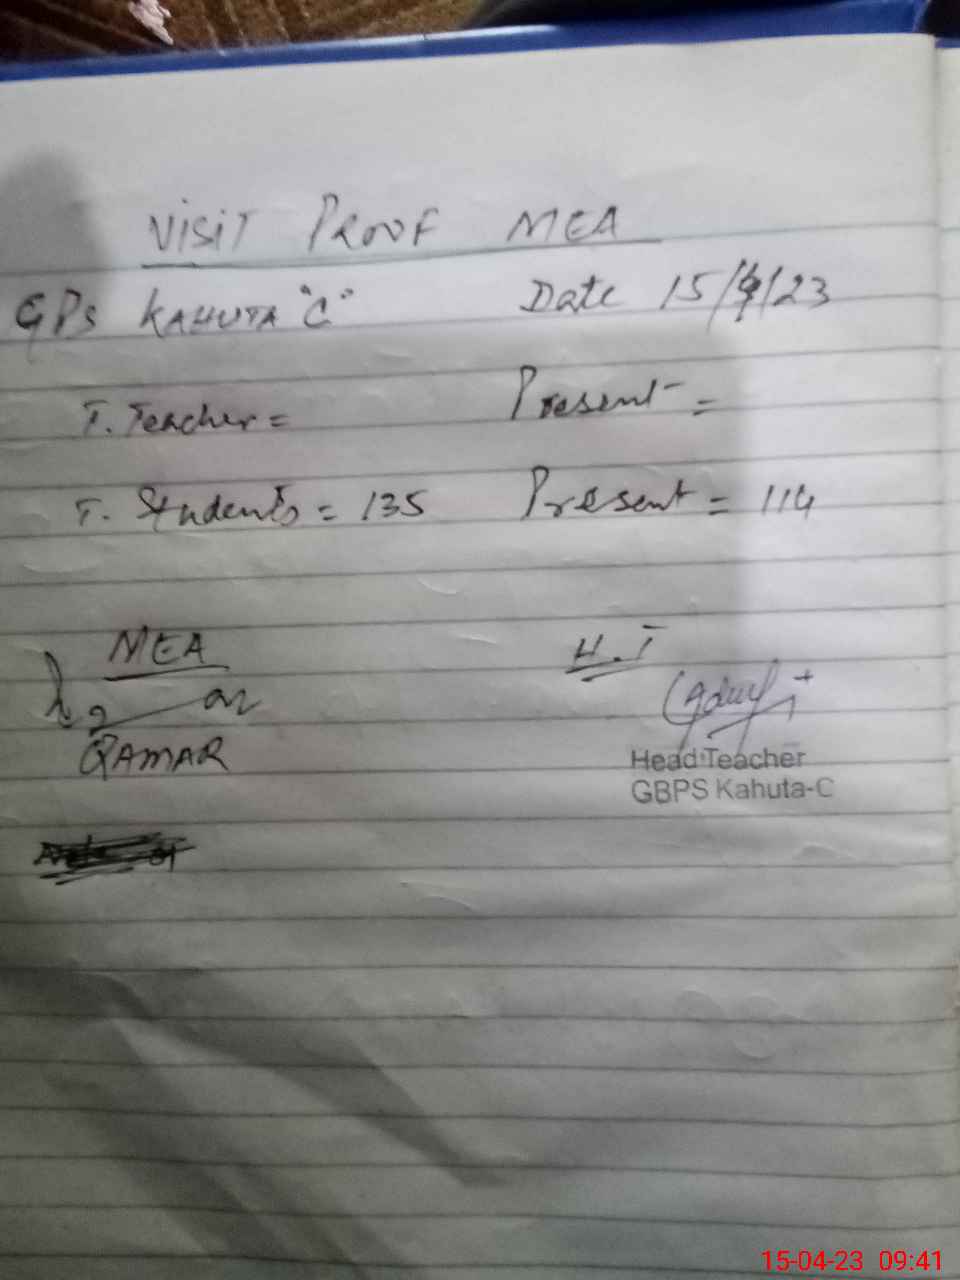 VISIT PROOF MEA
GPS KAHUTA "C" Date 15/4/23
T. Teacher = Present =
T. Students = 135 Present = 114
MEA H.T
QAMAR
Head Teacher
GBPS Kahuta-C
15-04-23 09:41